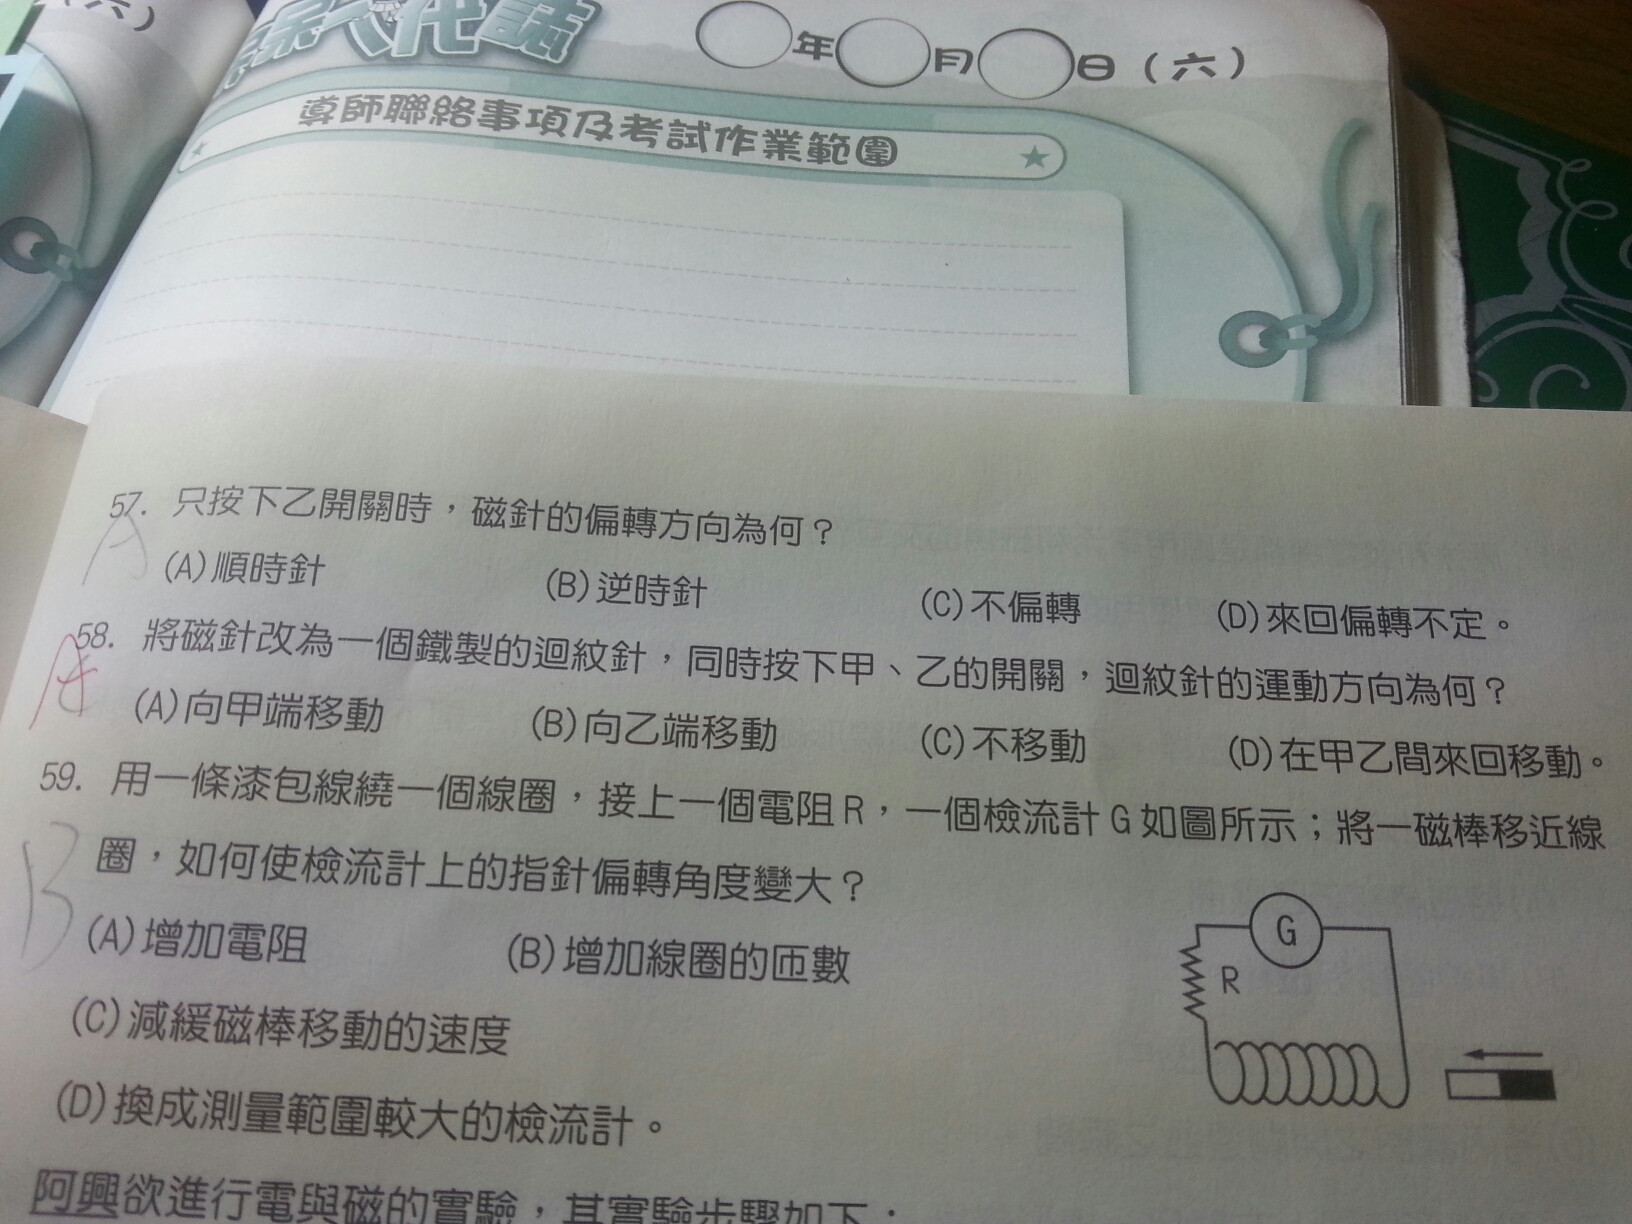 年 月 日（六）
導師聯絡事項及考試作業範圍
57. 只按下乙開關時，磁針的偏轉方向為何？
(A)順時針 (B)逆時針 (C)不偏轉 (D)來回偏轉不定。
58. 將磁針改為一個鐵製的迴紋針，同時按下甲、乙的開關，迴紋針的運動方向為何？
(A)向甲端移動 (B)向乙端移動 (C)不移動 (D)在甲乙間來回移動。
59. 用一條漆包線繞一個線圈，接上一個電阻R，一個檢流計G如圖所示；將一磁棒移近線
圈，如何使檢流計上的指針偏轉角度變大？
(A)增加電阻 (B)增加線圈的匝數
(C)減緩磁棒移動的速度
(D)換成測量範圍較大的檢流計。
G
R
A
A
B
阿興欲進行電與磁的實驗，其實驗步驟如下：